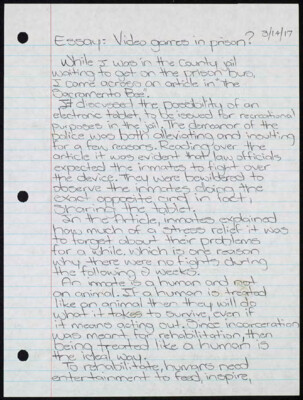 3/14/17
Essay: Video games in prison?
While I was in the County jail
waiting to get on the prison bus,
I came across an article in the
Sacramento Bee.
It discussed the possibility of an
electronic tablet, to be issued for recreational
purposes in the jail. The demeanor of the
police was both alleviating and insulting
for a few reasons. Reading over the
article it was evident that law officials
expected the inmates to fight over
the device. They were bewildered to
observe the inmates doing the
exact opposite and in fact,
sharing the tablet.
In the Article, inmates explained
how much of a stress relief it was
to forget about their problems
for a while, which is one reason
why there were no fights during
the following 2 weeks.
An inmate is a human and not
an animal. If a human is treated
like an animal then they will do
what it takes to survive, even if
it means acting out. Since incarceration
was meant for rehabilitation, then
being treated like a human is
the ideal way.
To rehabilitate, humans need
entertainment to feed, inspire,